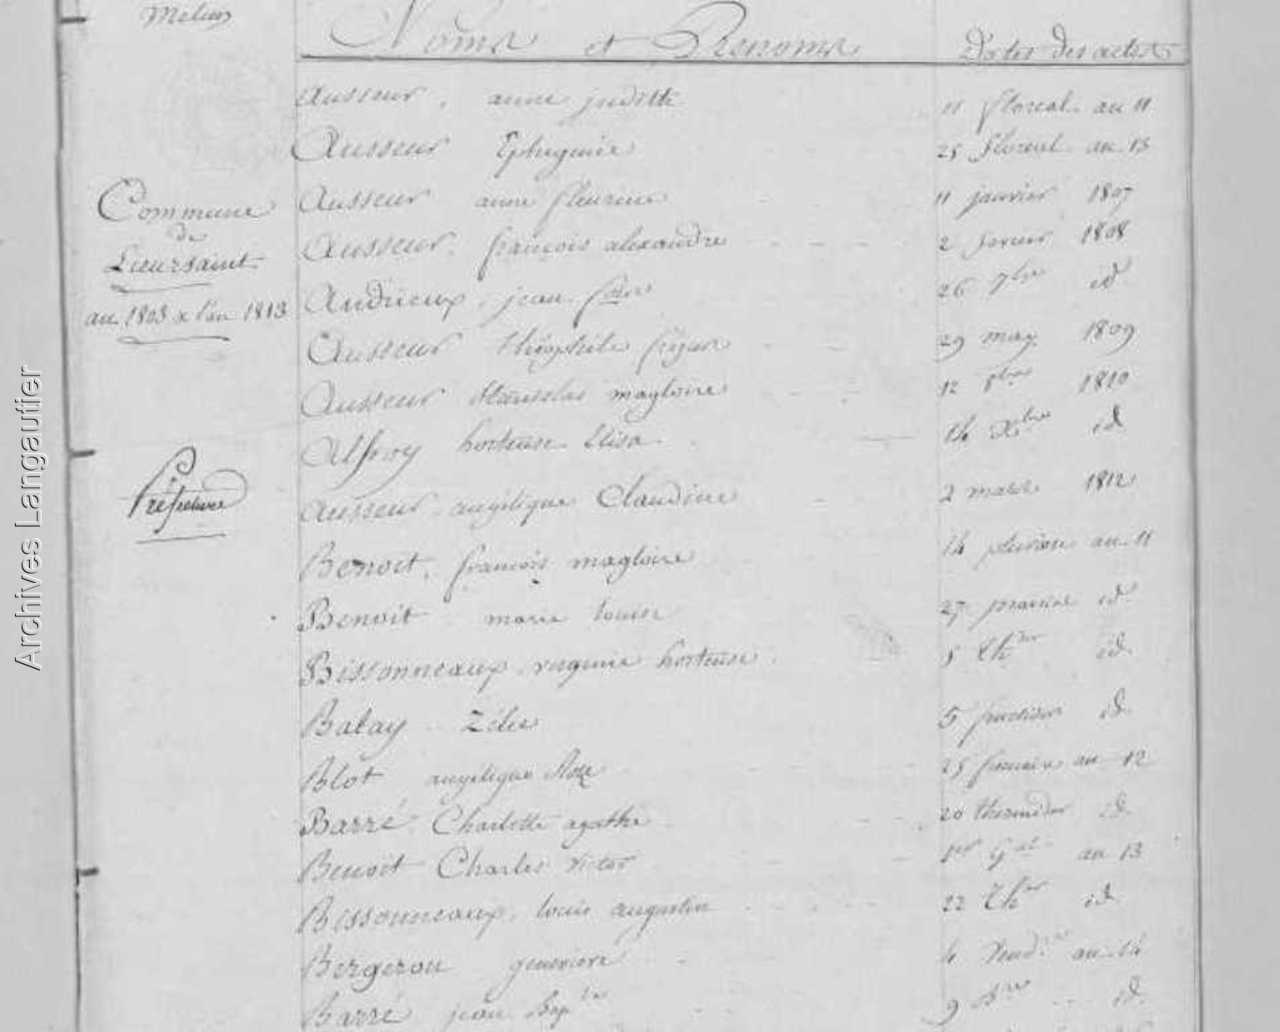 Melun
Noms et Prenoms Dates des actes
Ausseur, anne judith 11 floreal an 11
Ausseur Ephigenie 25 floreal an 13
Commune
de
Lieursaint
an 1803 a l'an 1813
Préfecture
Ausseur anne fleurine 11 janvier 1807
Ausseur, françois alexandre 2 1808
Andrieux, jean 26 7bre id
Ausseur théophile 29 may 1809
Ausseur Stanislas magloire 12 1810
Alfroy hortense Elisa 14 Xbre id
Ausseur, angélique Claudine 2 mars 1812
Benoit, francois magloire 14 pluviose an 11
Benoit marie louise 27 prairial id
Bissonneaux, virginie hortense 5 thor id
Balay Zélie 5 fructidor id
Blot angélique Roze 25 frimaire an 12
Barré Charlotte agathe 20 thermidor id
Benoit Charles victor 1er Gal an 13
Bissonneaux, louis augustin 22 thor id
Bergerou genevieve 4 Vendre an 14
Barré jean Bapte 9 id
Archives Langautier